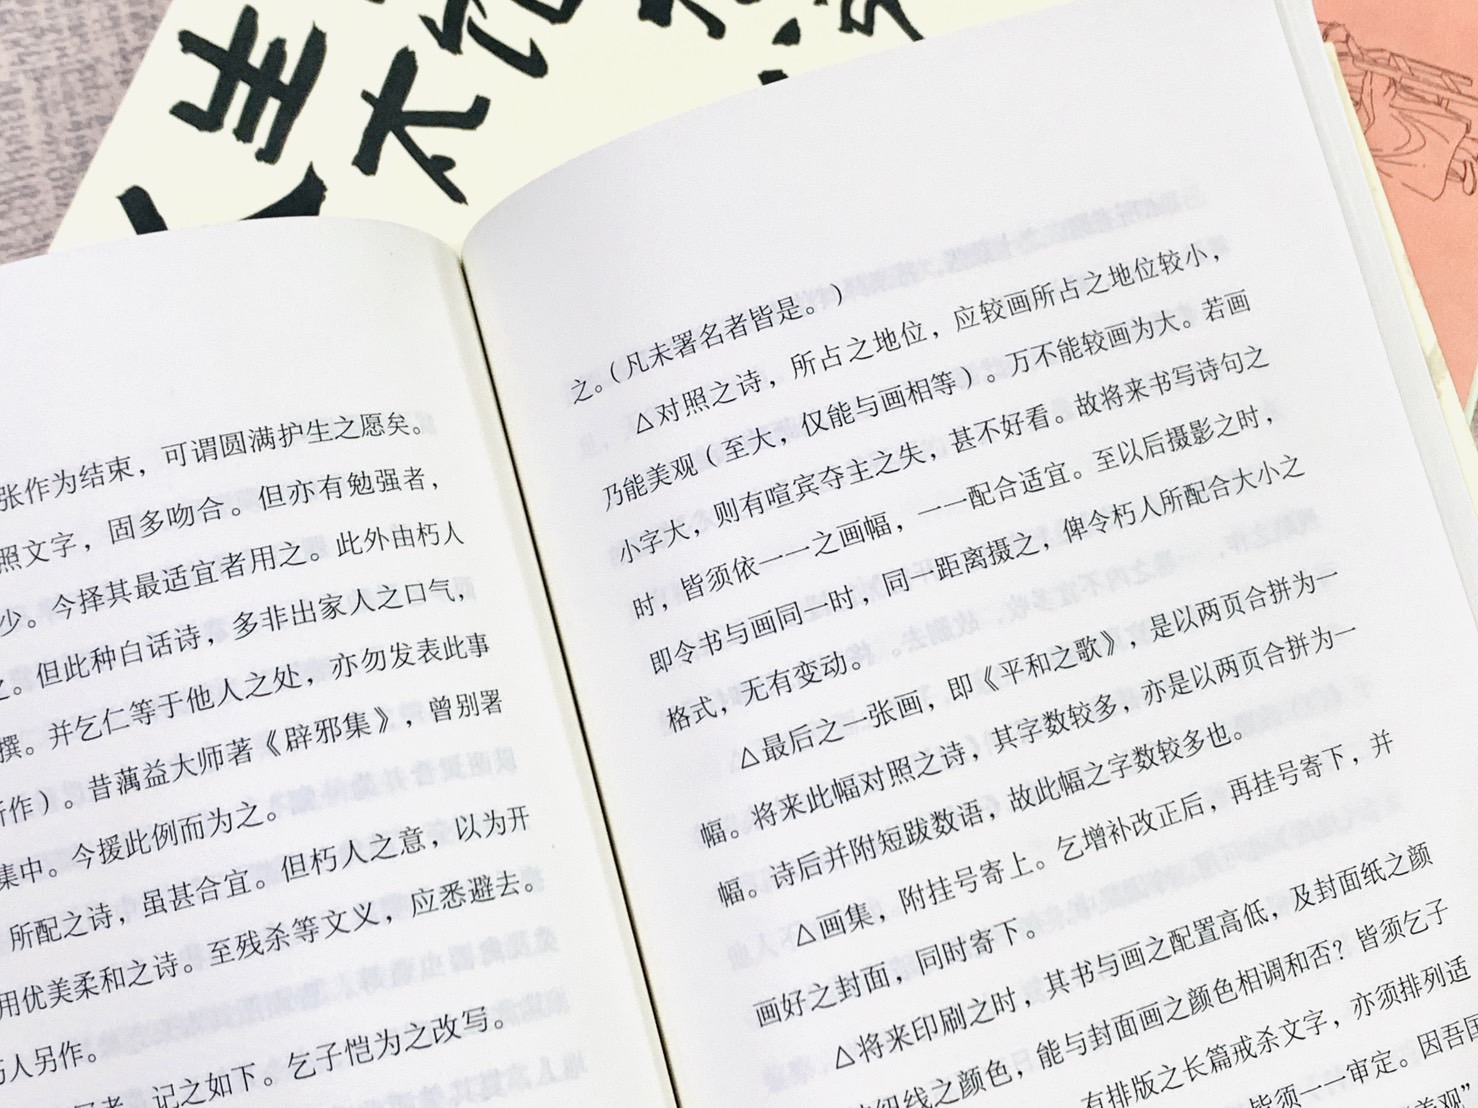 生
木
张作为结束，可谓圆满护生之愿矣。
照文字，固多吻合。但亦有勉强者，
少。今择其最适宜者用之。此外由朽人
之。但此种白话诗，多非出家人之口气，
撰。并乞仁等于他人之处，亦勿发表此事
所作）。昔蕅益大师著《辟邪集》，曾别署
集中。今援此例而为之。
所配之诗，虽甚合宜。但朽人之意，以为开
用优美柔和之诗。至残杀等文义，应悉避去。
朽人另作。
记之如下。乞子恺为之改写。
之。（凡未署名者皆是。）
△对照之诗，所占之地位，应较画所占之地位较小，
乃能美观（至大，仅能与画相等）。万不能较画为大。若画
小字大，则有喧宾夺主之失，甚不好看。故将来书写诗句之
时，皆须依一一之画幅，一一配合适宜。至以后摄影之时，
即令书与画同一时，同一距离摄之，俾令朽人所配合大小之
格式，无有变动。
△最后之一张画，即《平和之歌》，是以两页合拼为一
幅。将来此幅对照之诗，其字数较多，亦是以两页合拼为一
幅。诗后并附短跋数语，故此幅之字数较多也。
△画集，附挂号寄上。乞增补改正后，再挂号寄下，并
画好之封面，同时寄下。
△将来印刷之时，其书与画之配置高低，及封面纸之颜
纽线之颜色，能与封面画之颜色相调和否？皆须乞子
有排版之长篇戒杀文字，亦须排列适
皆须一一审定。因吾国
美观”